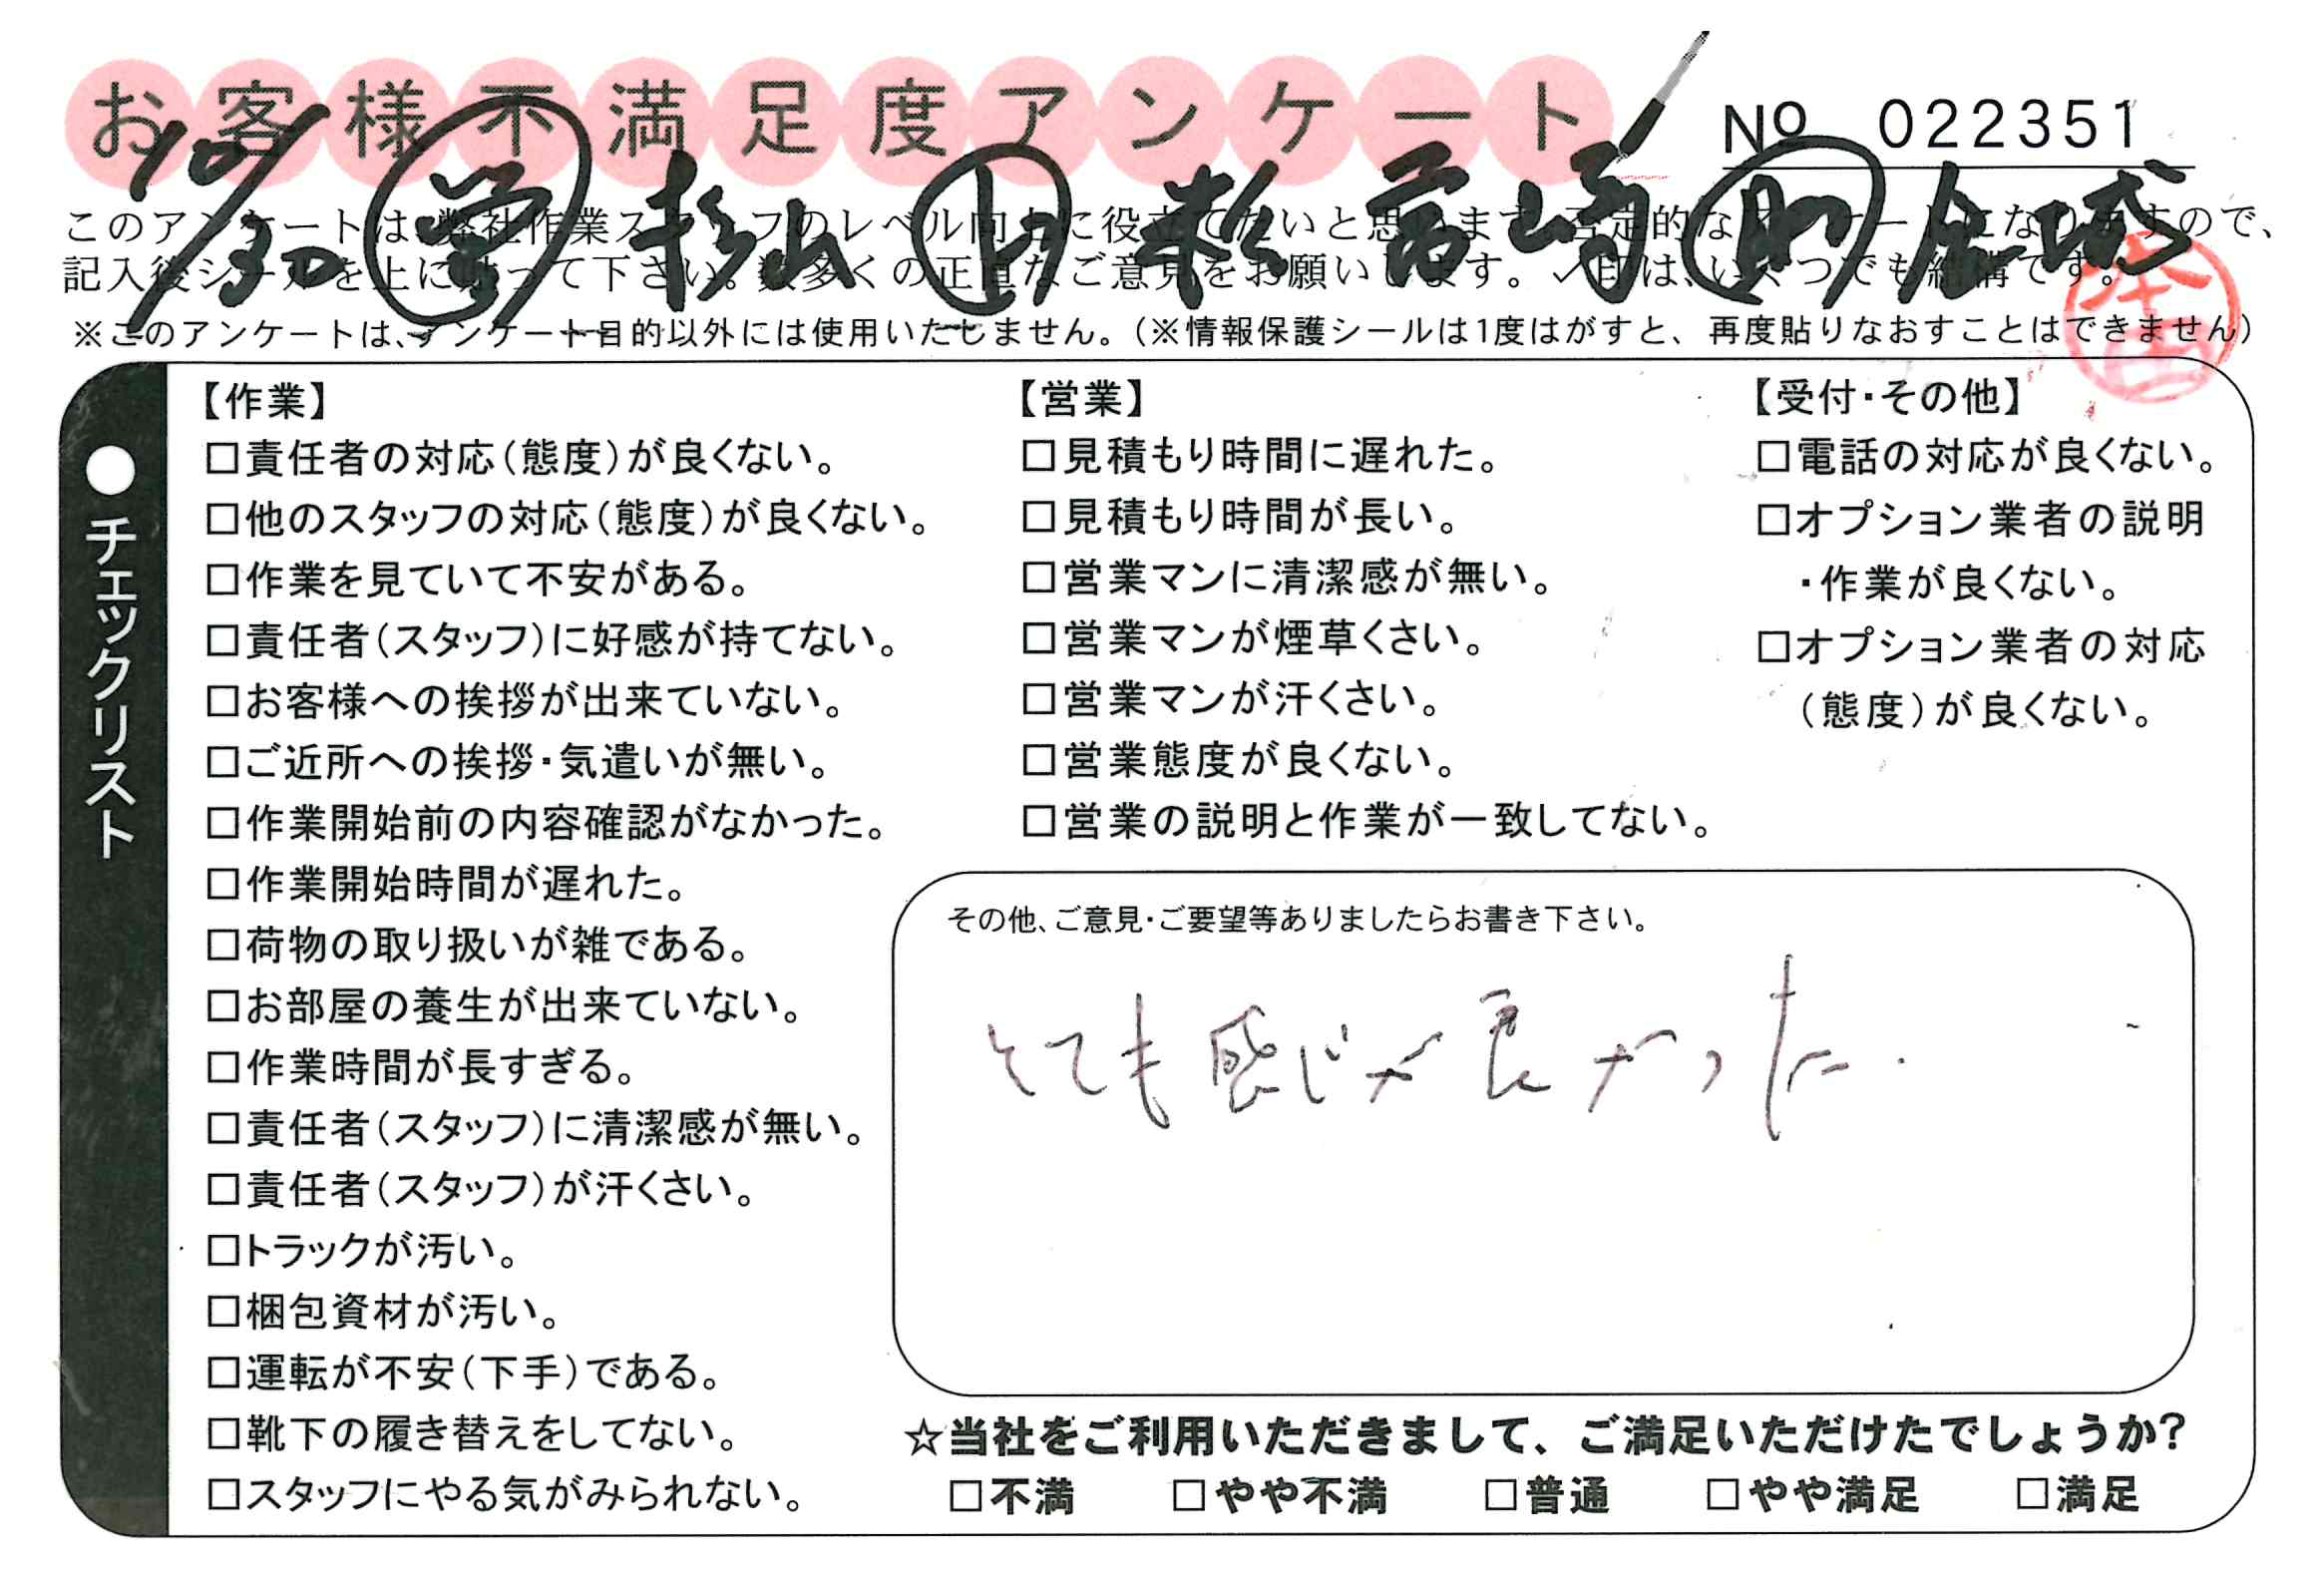 お客様不満足度アンケート
Nº 022351
10/30 営 杉山 作 松 宮崎 助
このアンケートは、弊社作業スタッフのレベル向上に役立てたいと思います。否定的なアンケートになりますので、
記入後シールを上に貼って下さい。数多くの正直なご意見をお願いします。✓印は、いくつでも結構です。
※このアンケートは、アンケート目的以外には使用いたしません。（※情報保護シールは1度はがすと、再度貼りなおすことはできません）
●チェックリスト
【作業】
□責任者の対応（態度）が良くない。
□他のスタッフの対応（態度）が良くない。
□作業を見ていて不安がある。
□責任者（スタッフ）に好感が持てない。
□お客様への挨拶が出来ていない。
□ご近所への挨拶・気遣いが無い。
□作業開始前の内容確認がなかった。
□作業開始時間が遅れた。
□荷物の取り扱いが雑である。
□お部屋の養生が出来ていない。
□作業時間が長すぎる。
□責任者（スタッフ）に清潔感が無い。
□責任者（スタッフ）が汗くさい。
□トラックが汚い。
□梱包資材が汚い。
□運転が不安（下手）である。
□靴下の履き替えをしてない。
□スタッフにやる気がみられない。
【営業】
□見積もり時間に遅れた。
□見積もり時間が長い。
□営業マンに清潔感が無い。
□営業マンが煙草くさい。
□営業マンが汗くさい。
□営業態度が良くない。
□営業の説明と作業が一致してない。
【受付・その他】
□電話の対応が良くない。
□オプション業者の説明
・作業が良くない。
□オプション業者の対応
（態度）が良くない。
その他、ご意見・ご要望等ありましたらお書き下さい。
とても感じが良かった.
☆当社をご利用いただきまして、ご満足いただけたでしょうか?
□不満 □やや不満 □普通 □やや満足 □満足